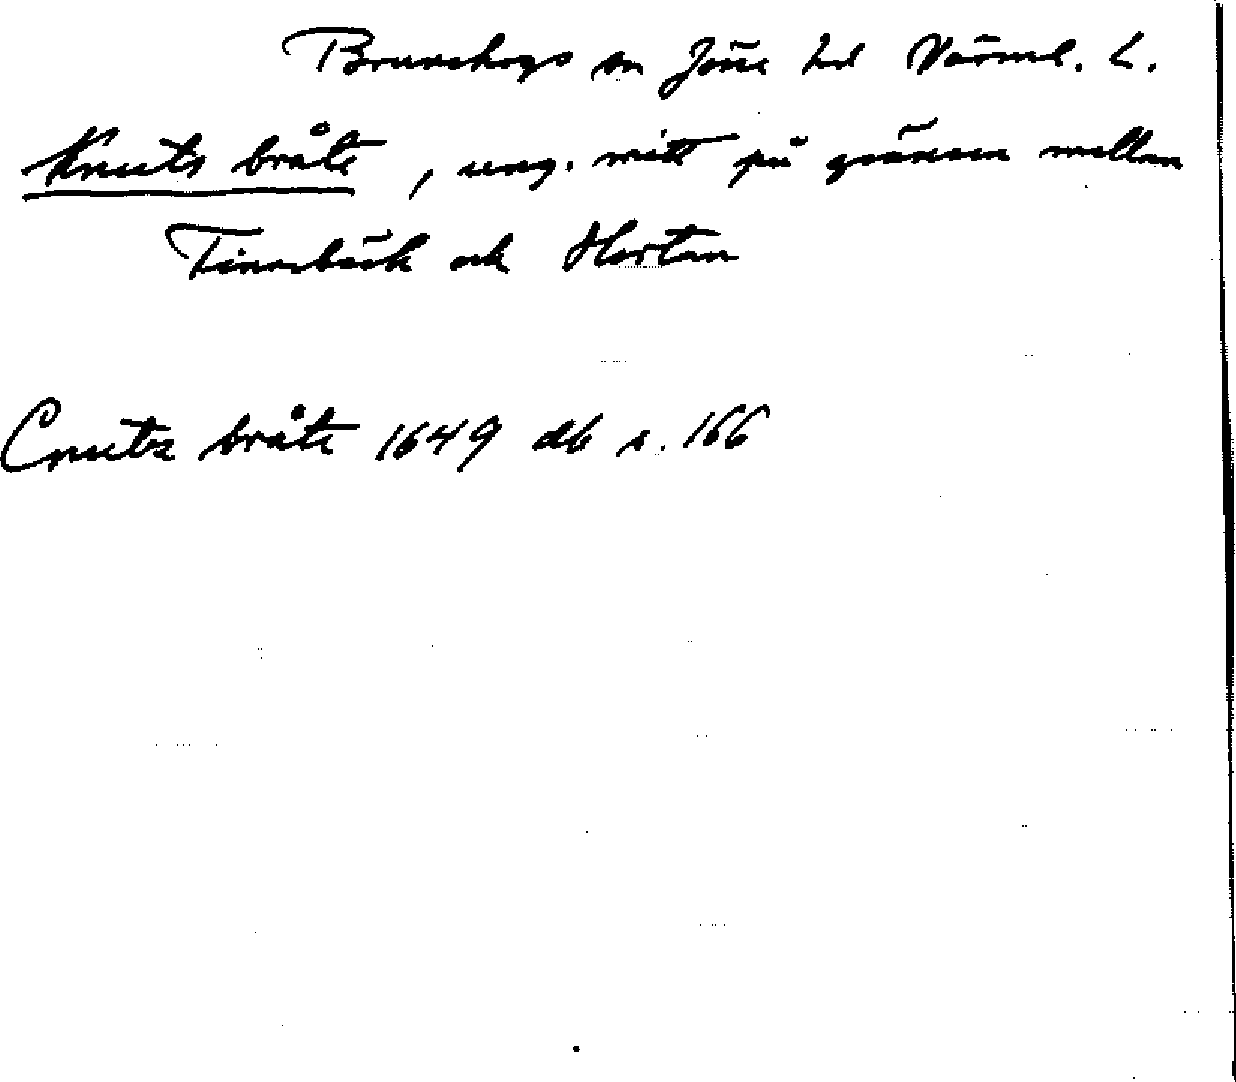 Brunskogs sn Jösse hd Värml. L.
Knuts bråte, ung. mitt på gränsen mellan
Tinnerbäck och Hortan
Cnutz bråte 1649 db s. 166